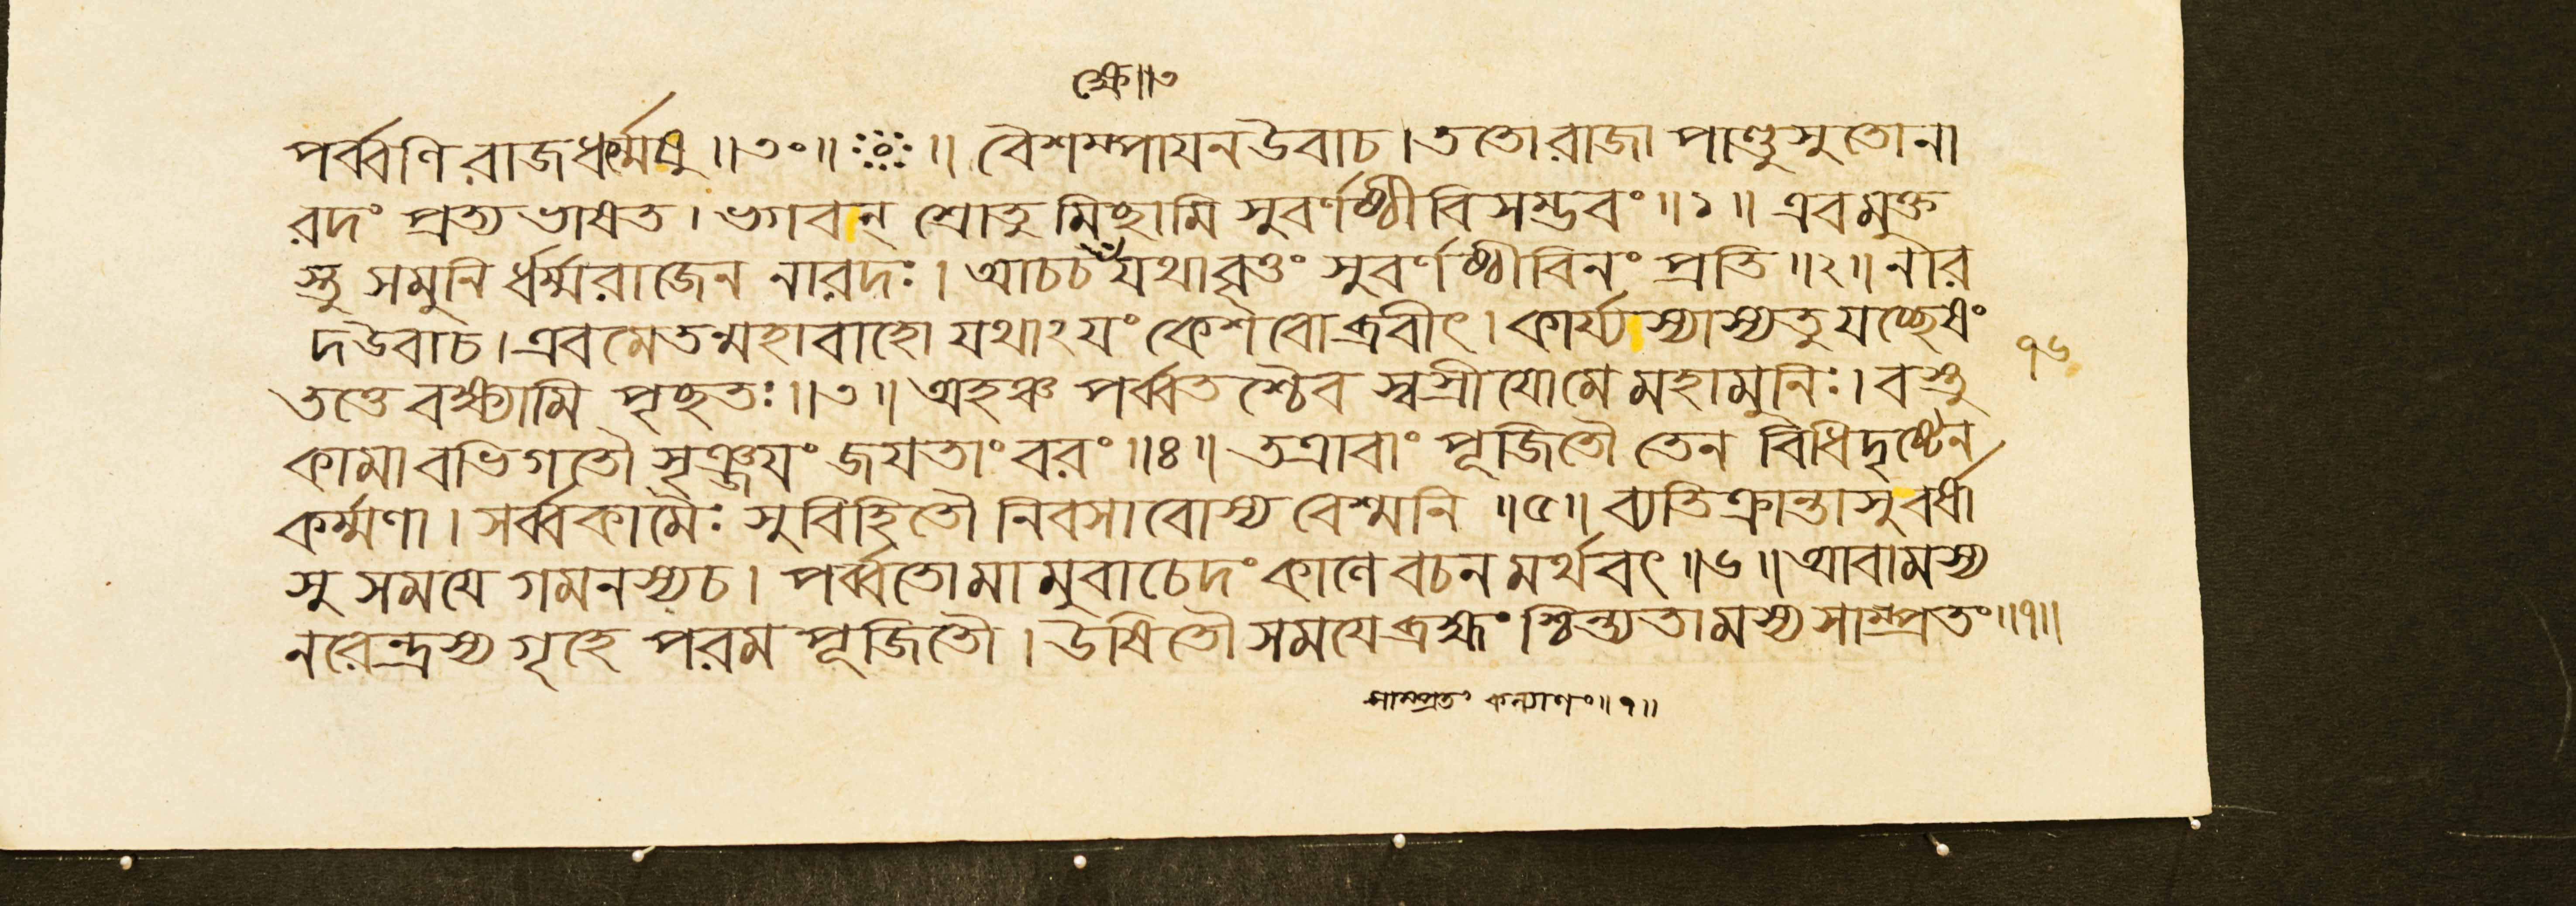 ক্ষে॥৩
পর্ব্বণি রাজধর্ম্মেষু ॥৩০॥ ॥ বৈশম্পায়ন উবাচ। ততো রাজা পাণ্ডুসুতো না
রদং প্রত্যভাষত। ভগবন্ শ্রোতুমিচ্ছামি সুবর্ণষ্ঠীবিসম্ভবং॥১॥ এবমুক্ত
স্তু সমুনি র্ধর্ম্মরাজেন নারদঃ। আচচক্ষে যথাবৃত্তং সুবর্ণষ্ঠীবিনং প্রতি॥২॥ নার
দ উবাচ। এবমেতন্মহাবাহো যথাঽয়ং কেশবোঽব্রবীৎ। কার্য্যস্যাস্য তু যচ্ছেষং
তত্তে বক্ষ্যামি পৃচ্ছতঃ॥৩॥ অহঞ্চ পর্ব্বতশ্চৈব স্বস্রীয়ো মে মহামুনিঃ। বস্তু
কামাবভিগতৌ সৃঞ্জয়ং জয়তাং বরং॥৪॥ তত্রাবাং পূজিতৌ তেন বিধিদৃষ্টেন
কর্ম্মণা। সর্ব্বকামৈঃ সুবিহিতৌ নিবসাবোস্য বেশ্মনি ॥৫॥ ব্যতিক্রান্তাসু বর্ষা
সু সময়ে গমনস্য চ। পর্ব্বতো মামুবাচেদং কালে বচনমর্থবৎ॥৬॥ আবামস্য
নরেন্দ্রস্য গৃহে পরমপূজিতৌ। উষিতৌ সময়ে ব্রহ্মংশ্চিন্ত্যতামস্য সাম্প্রতং॥৭॥
৭৬
সাম্প্রতং কল্যাণং॥৭॥